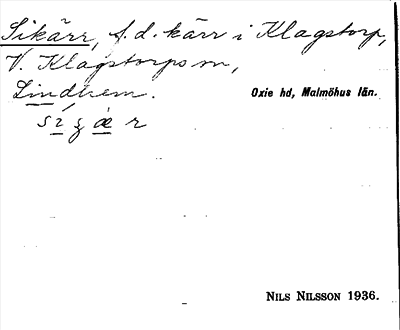 Sikärr, f.d. kärr i Klagstorp,
V. Klagstorps sn,
Lindhem. Oxie hd, Malmöhus län.
NILS NILSSON 1936.